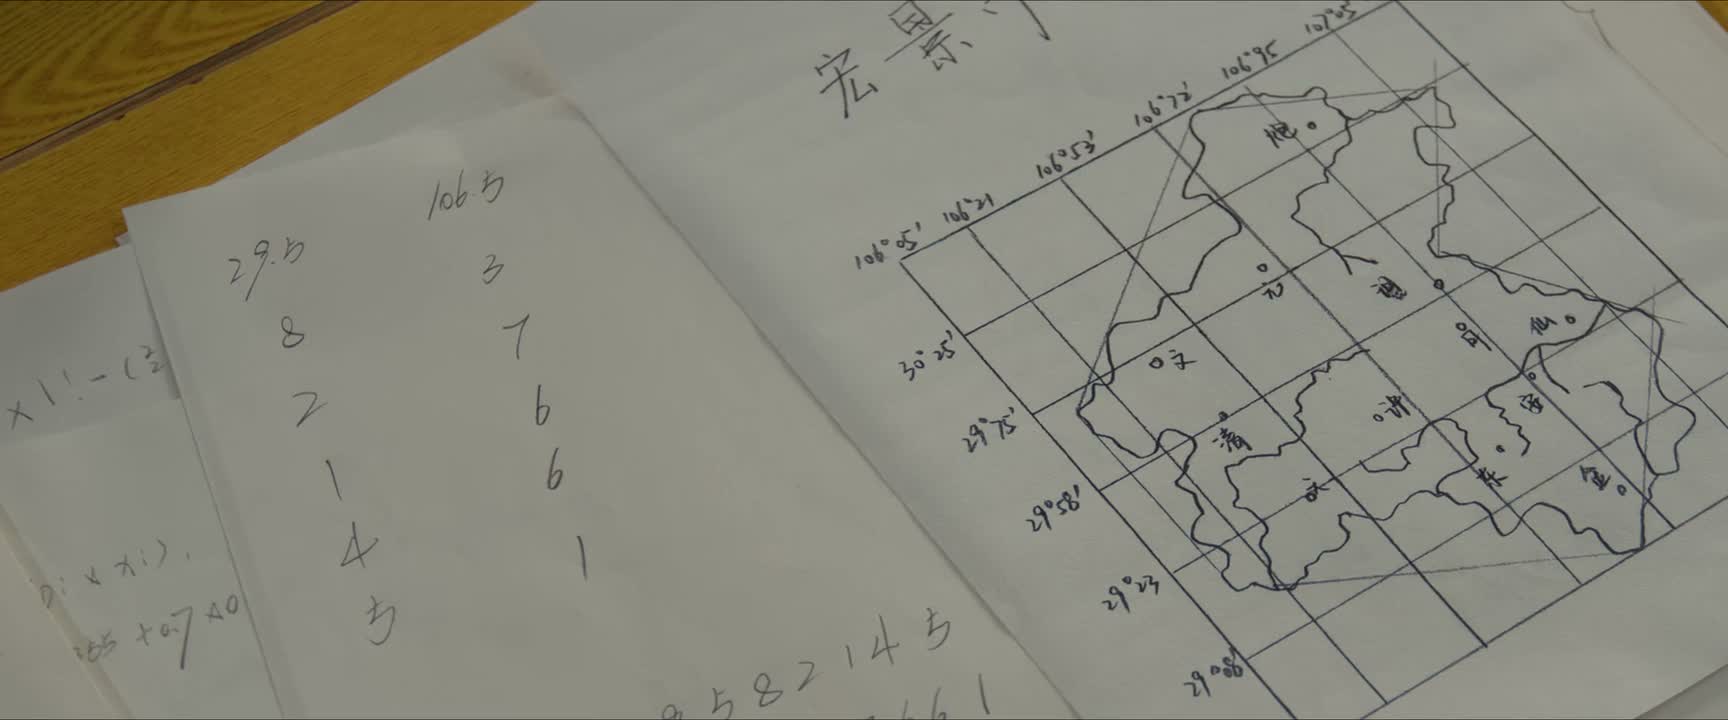 × 1! - (2
× xi).
+0.7×0
29.5
8
2
1
4
5
106.5
3
7
6
6
1
582145
661
宏景
106°05'
106°21
106°53'
106°72'
106°95
107°05'
30°25'
29°75'
29°58'
29°23
29°08'
炮
元
文
清
仙
安
东
金